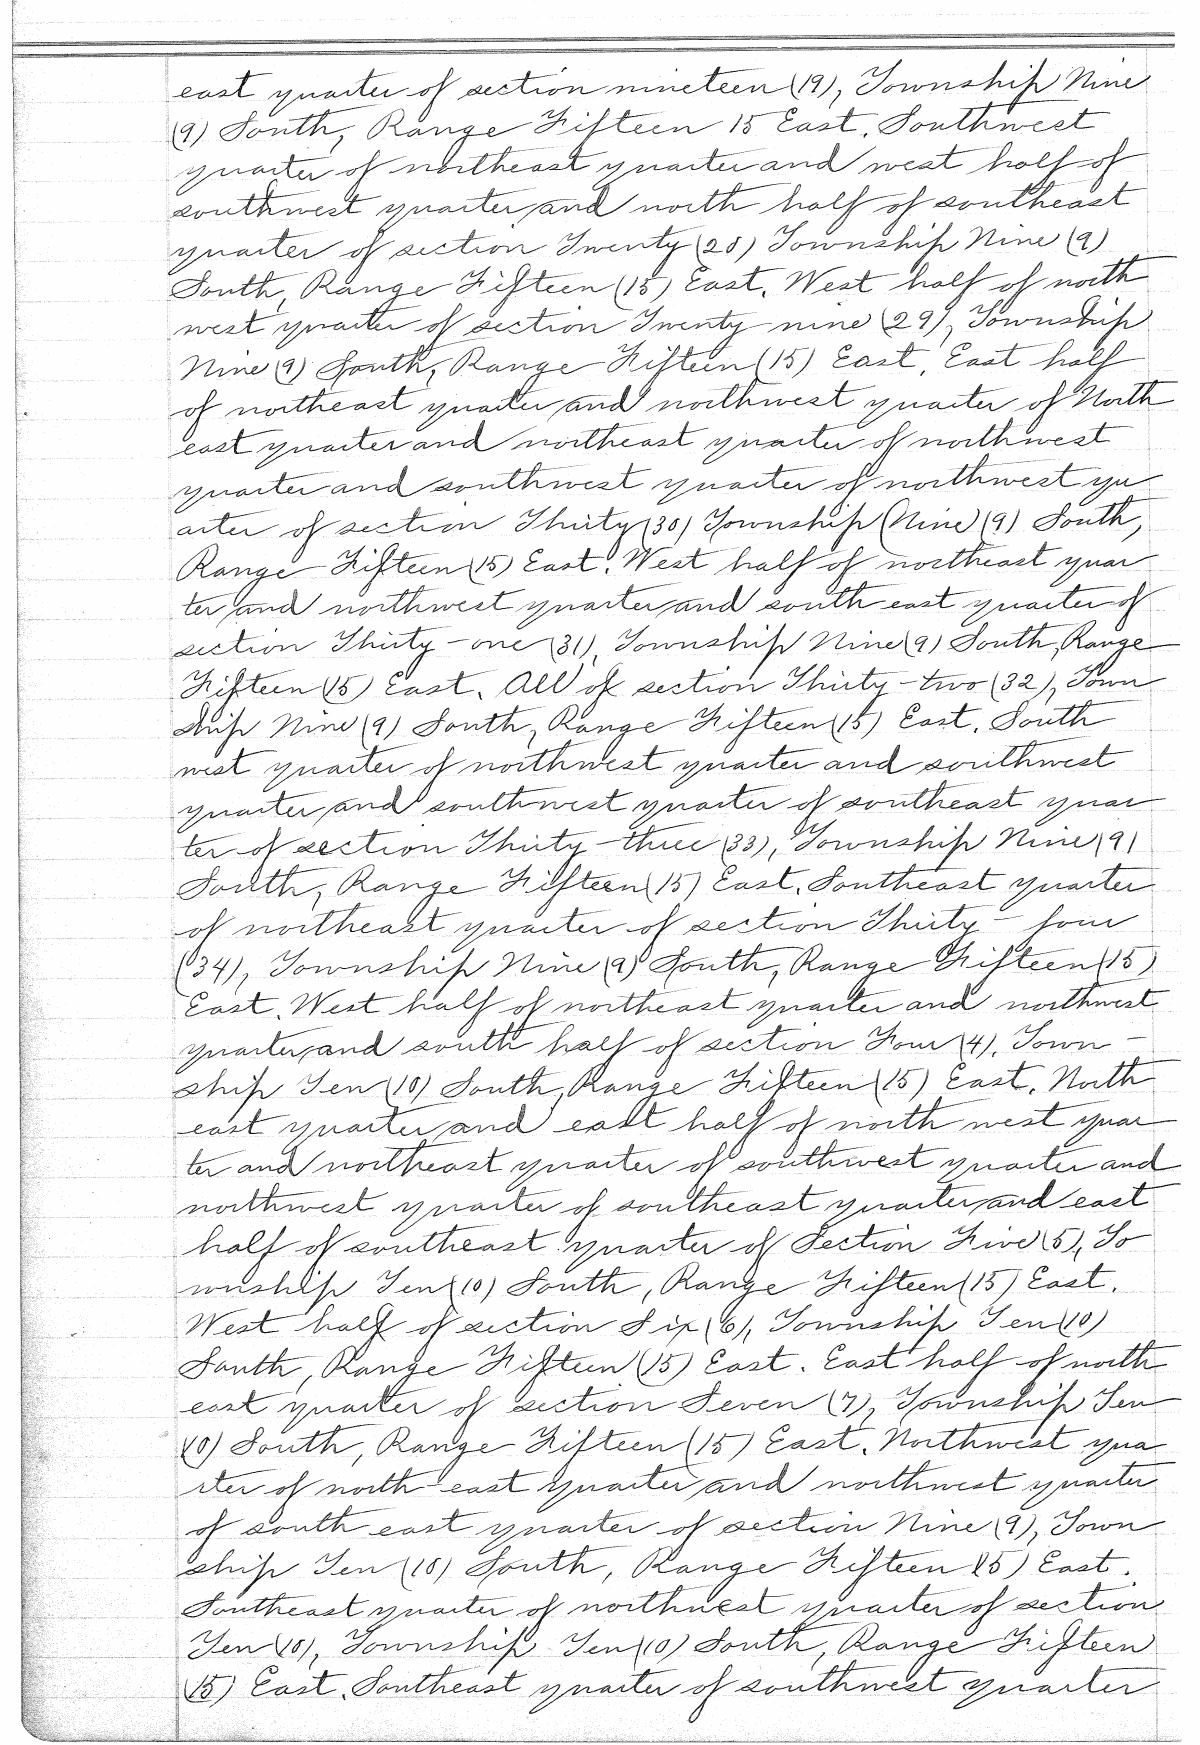 east quarter of section nineteen (19), Township Nine
(9) South, Range Fifteen 15 East. Southwest
quarter of northeast quarter and west half of
southwest quarter and north half of southeast
quarter of section Twenty (20) Township Nine (9)
South, Range Fifteen (15) East. West half of north
west quarter of section Twenty nine (29), Township
Nine (9) South, Range Fifteen (15) East. East half
of northeast quarter and northwest quarter of North
east quarter and northeast quarter of northwest
quarter and southwest quarter of northwest qu
arter of section Thirty (30) Township Nine (9) South,
Range Fifteen (15) East. West half of northeast quar
ter and northwest quarter and south east quarter of
section Thirty-one (31), Township Nine (9) South, Range
Fifteen (15) East. All of section Thirty-two (32), Town
ship Nine (9) South, Range Fifteen (15) East. South
west quarter of northwest quarter and southwest
quarter and southwest quarter of southeast quar
ter of section Thirty-three (33), Township Nine (9)
South, Range Fifteen (15) East. Southeast quarter
of northeast quarter of section Thirty-four
(34), Township Nine (9) South, Range Fifteen (15)
East. West half of northeast quarter and northwest
quarter and south half of section Four (4), Town-
ship Ten (10) South, Range Fifteen (15) East. North
east quarter and east half of north west quar
ter and northeast quarter of southwest quarter and
northwest quarter of southeast quarter and east
half of southeast quarter of Section Five (5), To
wnship Ten (10) South, Range Fifteen (15) East.
West half of section Six (6), Township Ten (10)
South, Range Fifteen (15) East. East half of north
east quarter of section Seven (7), Township Ten
(10) South, Range Fifteen (15) East. Northwest qua
rter of north east quarter and northwest quarter
of south east quarter of section Nine (9), Town
ship Ten (10) South, Range Fifteen (15) East.
Southeast quarter of northwest quarter of section
Ten (10), Township Ten (10) South, Range Fifteen
(15) East. Southeast quarter of southwest quarter